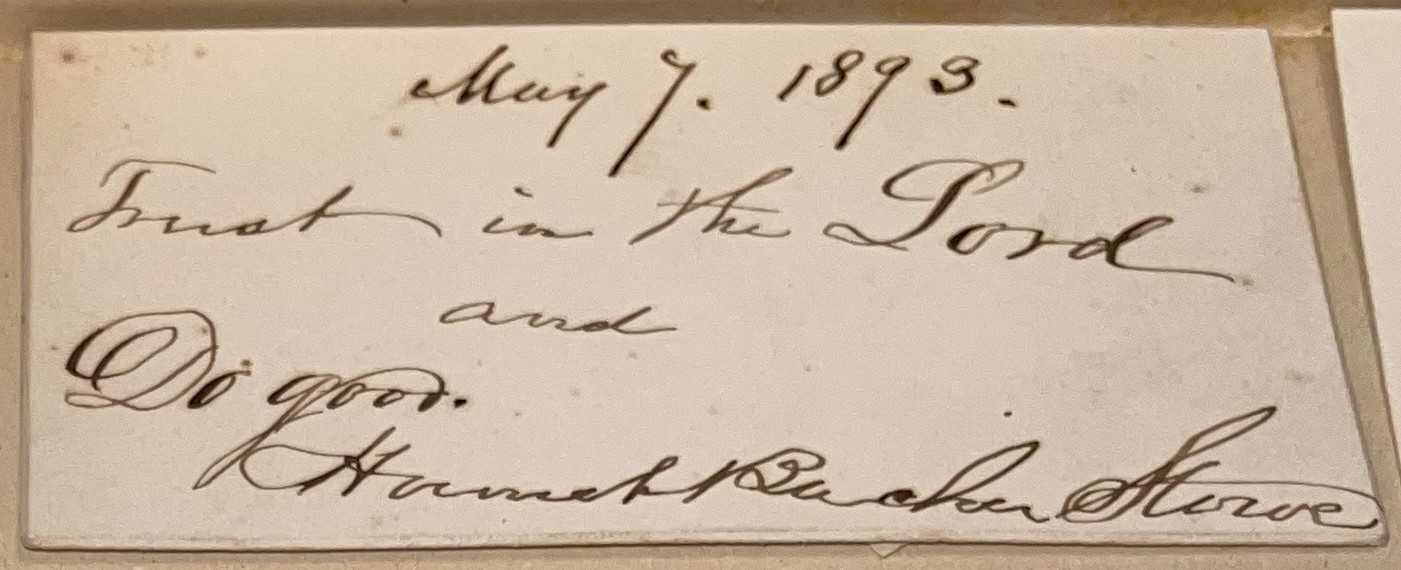 May 7. 1893.
Trust in the Lord
and
Do good.
Harriet Beecher Stowe